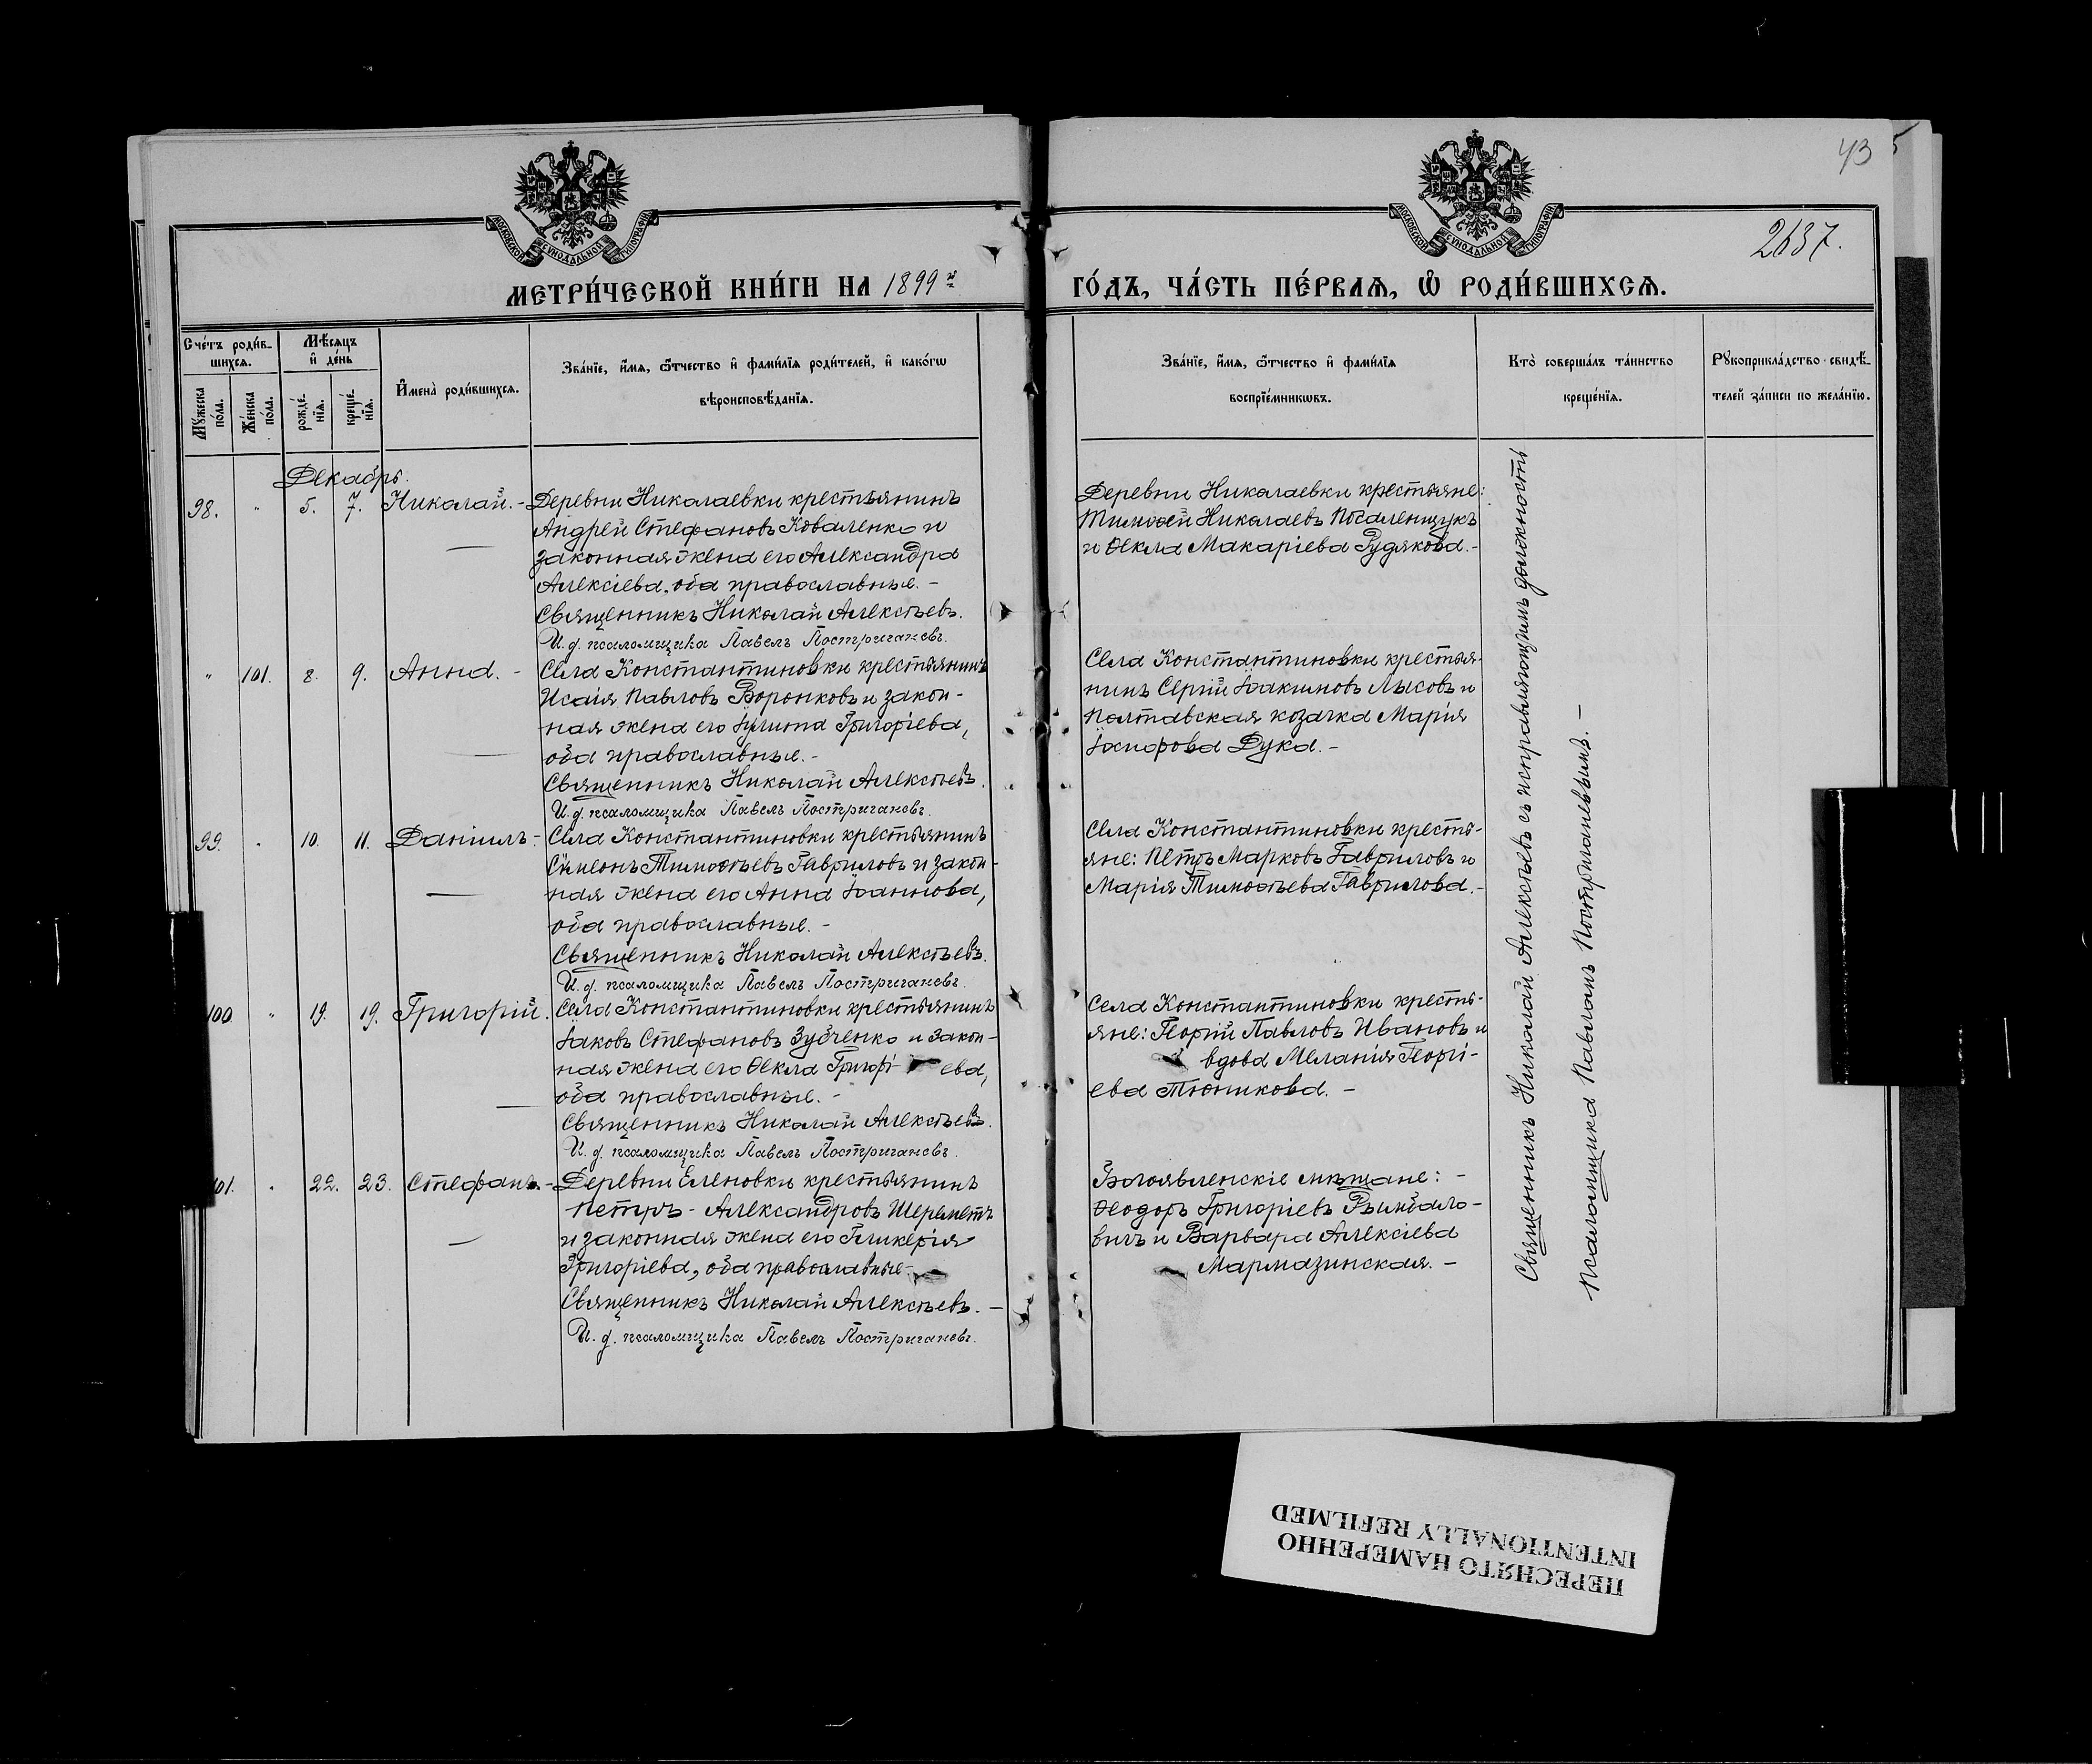 43
2637.
МОСКОВСКОЙ СѴНОДАЛЬНОЙ ТИПОГРАФІИ
МОСКОВСКОЙ СѴНОДАЛЬНОЙ ТИПОГРАФІИ
МЕТРИ́ЧЕСКОЙ КНИ́ГИ НА 1899й ГО́ДЪ, ЧА́СТЬ ПЕ́РВАѦ, Ѡ҆ РОДИ́ВШИХСѦ.
Сче́тъ роди́в-
шихсѧ.
Мꙋ́жеска по́ла.
Же́нска по́ла.
Мѣ́сѧцъ
и҆ де́нь
рожде́-нїѧ.
креще́-нїѧ.
И҆мена̀ роди́вшихсѧ.
Зва́нїе, и҆́мѧ, ѻ҆́тчество и҆ фами́лїѧ роди́телей, и҆ како́гѡ
вѣроисповѣ́данїѧ.
Зва́нїе, и҆́мѧ, ѻ҆́тчество и҆ фами́лїѧ
воспрїе́мникѡвъ.
Кто̀ соверша́лъ та́инство
креще́нїѧ.
Рꙋкоприкла́дство свидѣ́-
телей за́писи по жела́нїю.
Декабрь.
98. " 5. 7. Николай. - Деревни Николаевки крестьянинъ
Андрей Стефановъ Коваленко и
законная жена его Александра
Алексіева, оба православные. -
Священникъ Николай Алексѣевъ.
И. д. псаломщика Павелъ Постригачевъ.
Деревни Николаевки крестьяне:
Тимоѳей Николаевъ
и Ѳекла Макаріева Рудякова. -
" 101. 8. 9. Анна. - Села Константиновки крестьянинъ
Исаія Павловъ Воронковъ и закон-
ная жена его Іулита Григоріева,
оба православные. -
Священникъ Николай Алексѣевъ.
И. д. псаломщика Павелъ Постригачевъ.
Села Константиновки крестья-
нинъ Сергій Іоакимовъ Лысовъ и
Полтавская козачка Марія
Іосифова Дука. -
99. " 10. 11. Даніилъ. - Села Константиновки крестьянинъ
Сѵмеонъ Тимоѳѣевъ Гавриловъ и закон-
ная жена его Анна Іоаннова,
оба православные. -
Священникъ Николай Алексѣевъ.
И. д. псаломщика Павелъ Постригачевъ.
Села Константиновки кресть-
яне: Петръ Марковъ Гавриловъ и
Марія Тимоѳѣева Гаврилова. -
100 " 19. 19. Григорій. Села Константиновки крестьянинъ
Іаковъ Стефановъ Зубченко и закон-
ная жена его Ѳекла Григорі ева,
оба православные. -
Священникъ Николай Алексѣевъ.
И. д. псаломщика Павелъ Постригачевъ.
Села Константиновки кресть-
яне: Георгій Павловъ Ивановъ и
вдова Меланія Георгі-
ева Тютикова. -
101. " 22. 23. Стефанъ. - Деревни Еленовки крестьянинъ
Петръ - Александровъ Шереметъ
и законная жена его Гликерія
Григоріева, оба православные -
Священникъ Николай Алексѣевъ. -
И. д. псаломщика Павелъ Постригачевъ.
Богоявленскіе мѣщане: -
Ѳеодоръ Григоріевъ Рымбало-
вичъ и Варвара Алексіева
Мармазинская. -
Священникъ Николай Алексѣевъ съ исправляющимъ должность
Псаломщика Павломъ Постригачевымъ. -
ПЕРЕСНЯТО НАМЕРЕННО
INTENTIONALLY REFILMED